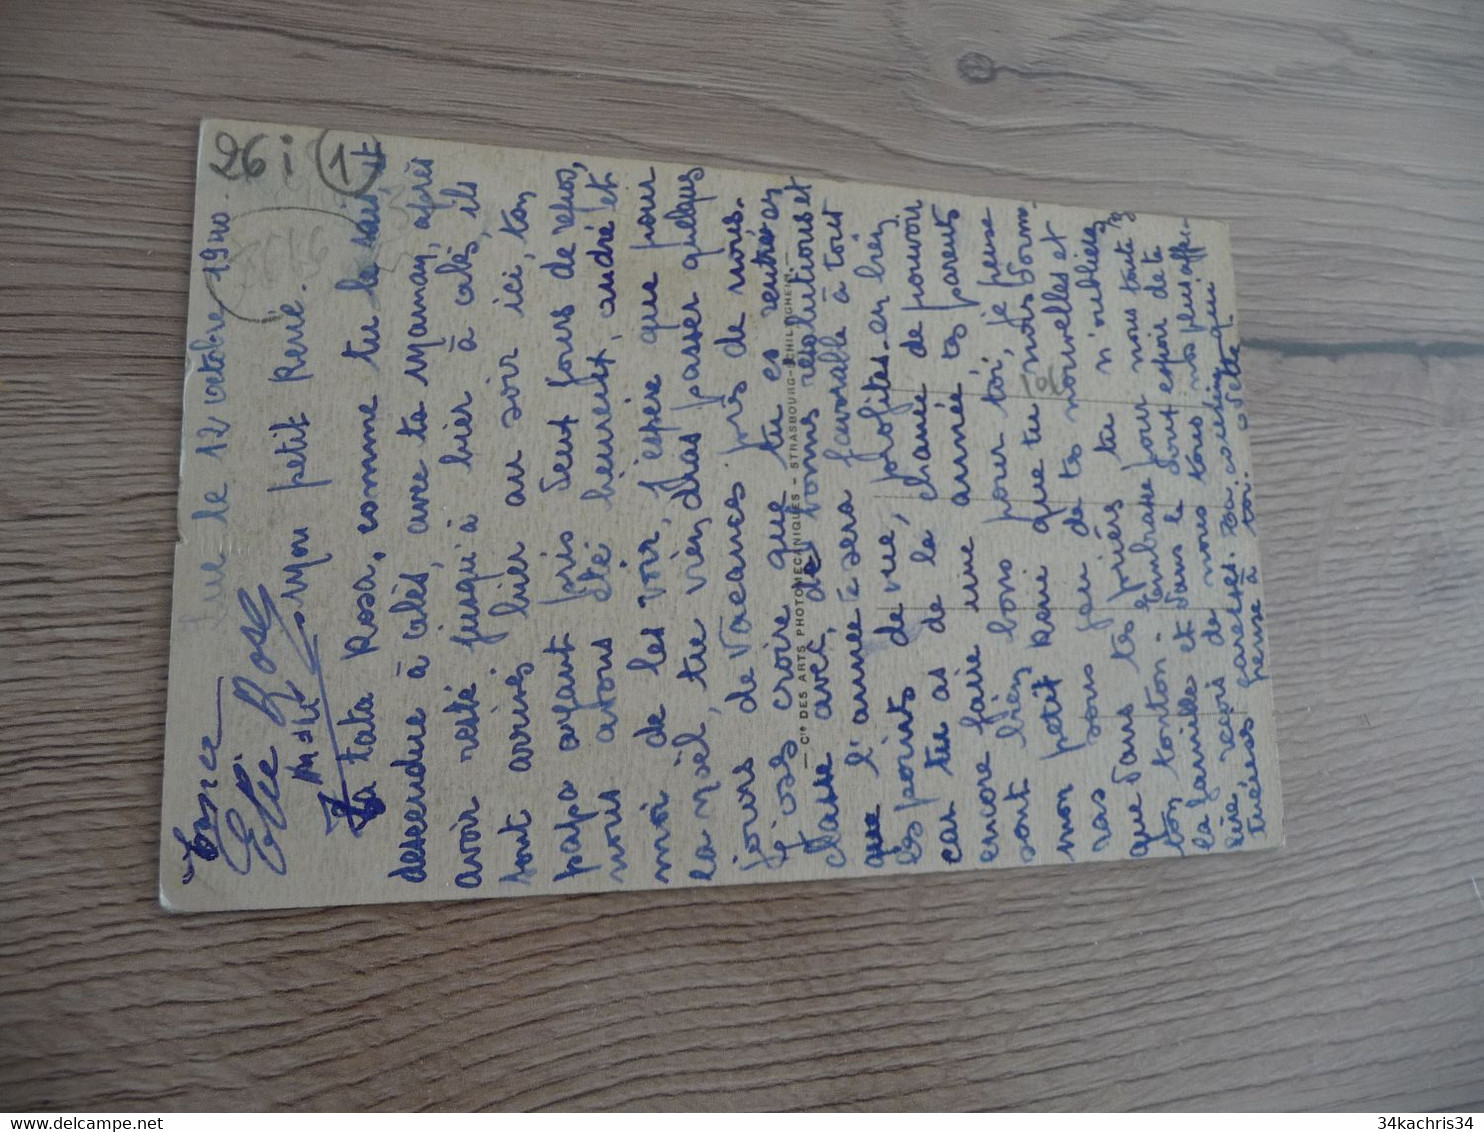 26 i 1
le 12 octobre 1940.
Mon petit René.
Elie Rose
André
Ta tata Rosa, comme tu le sais, est
descendue à alès, avec ta maman, après
avoir resté jusqu'à hier à alès, ils
sont arrivés hier au soir ici, ton
papa ayant pris deux jours de repos,
nous avons été heureux, andré et
moi de les voir, j'espère que pour
la noël, tu viendras passer quelques
jours de Vacances près de nous.
J'ose croire que tu es rentré en
— Cie DES ARTS PHOTOMECANIQUES — STRASBOURG-SCHILTIGHEIM —
classe avec de bonnes resolutions et
que l'année te sera favorable à tout
les points de vue, profites-en bien
car tu as de la chance de pouvoir
encore faire une année tes parents
sont bien bons pour toi, je pense
mon petit René que tu nous donne-
ras sous peu de tes nouvelles et
que dans tes prières tu n'oublieras
ton tonton. t'embrasse pour nous toute
la famille et dans le doux espoir de te
lire reçois de nous tous nos plus affec-
tueuses caresses. ta cousine qui
pense à toi. Odette
106
34kachris34